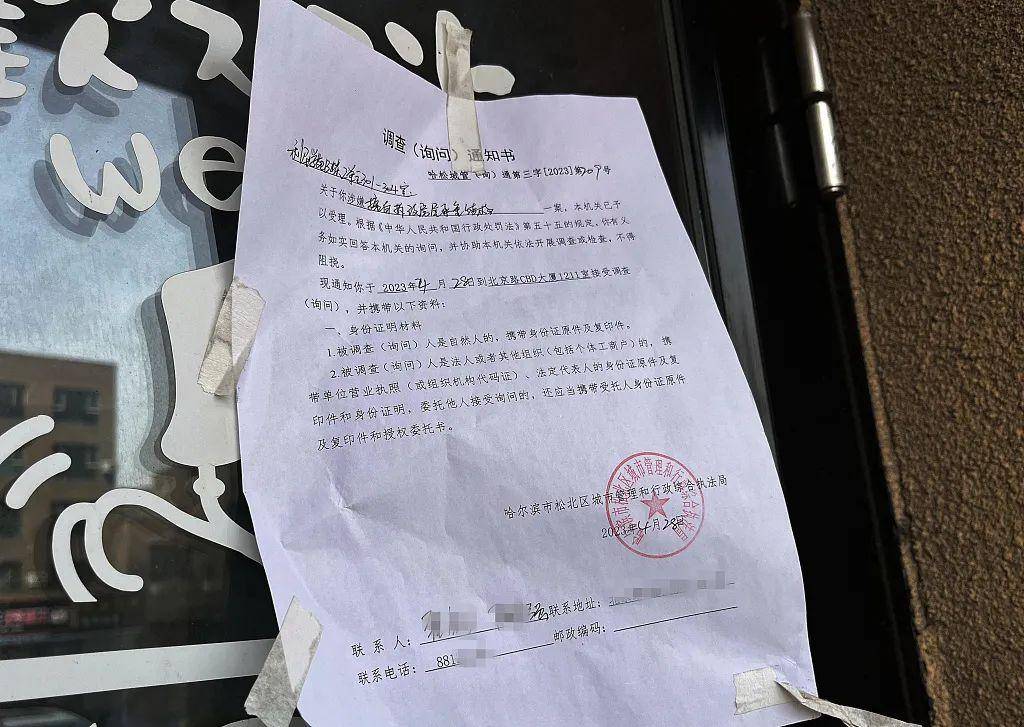 We
调查（询问）通知书
哈松城管（询）通第三字[2023]第209号
2栋2单元301-304室：
关于你涉嫌擅自拆改房屋承重结构一案，本机关已予
以受理。根据《中华人民共和国行政处罚法》第五十五的规定，你有义
务如实回答本机关的询问，并协助本机关依法开展调查或检查，不得
阻挠。
现通知你于 2023年4月28日到北京路CBD大厦1211室接受调查
（询问），并携带以下资料：
一、身份证明材料
1.被调查（询问）人是自然人的，携带身份证原件及复印件。
2.被调查（询问）人是法人或者其他组织(包括个体工商户)的，携
带单位营业执照（或组织机构代码证）、法定代表人的身份证原件及复
印件和身份证明，委托他人接受询问的，还应当携带受托人身份证原件
及复印件和授权委托书。
哈尔滨市松北区城市管理和行政综合执法局
2023年4月28日
联系人： 联系地址：
联系电话：881 邮政编码：